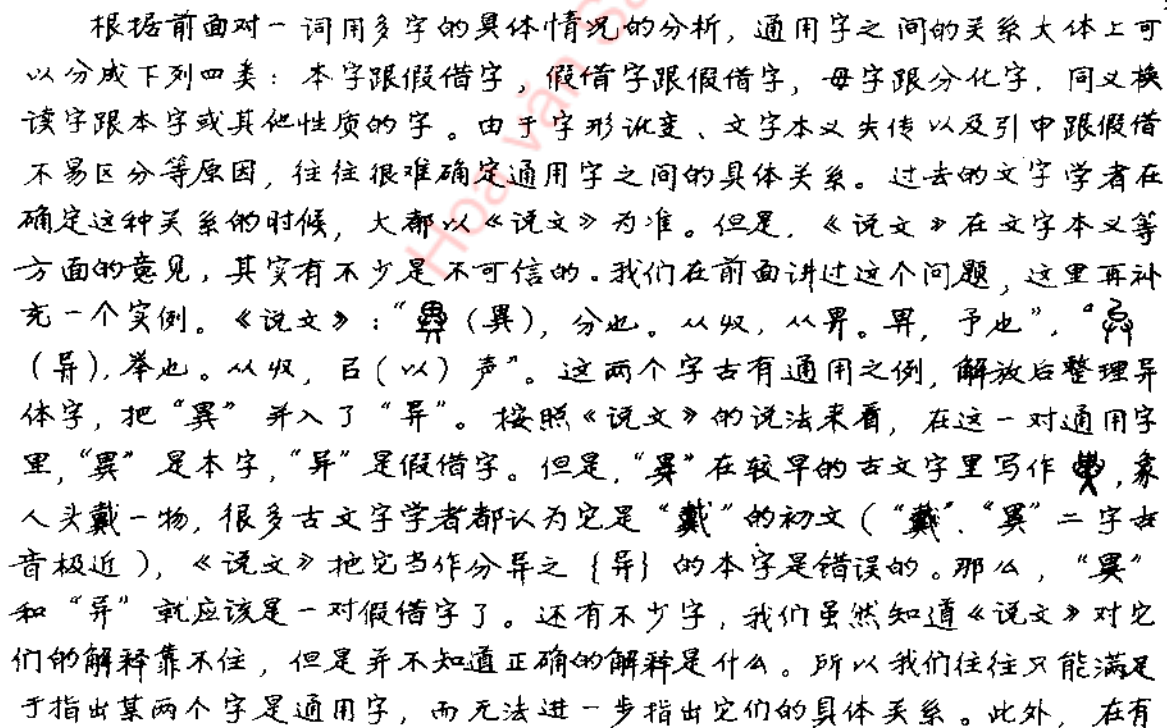 根据前面对一词用多字的具体情况的分析，通用字之间的关系大体上可
以分成下列四类：本字跟假借字，假借字跟假借字，母字跟分化字，同义换
读字跟本字或其他性质的字。由于字形讹变、文字本义失传以及引申跟假借
不易区分等原因，往往很难确定通用字之间的具体关系。过去的文字学者在
确定这种关系的时候，大都以《说文》为准。但是，《说文》在文字本义等
方面的意见，其实有不少是不可信的。我们在前面讲过这个问题，这里再补
充一个实例。《说文》：“（異），分也。从廾，从畀。畀，予也”，“
（异），举也。从廾，㠯（以）声”。这两个字古有通用之例，解放后整理异
体字，把“異”并入了“异”。按照《说文》的说法来看，在这一对通用字
里，“異”是本字，“异”是假借字。但是，“異”在较早的古文字里写作，象
人头戴一物，很多古文字学者都认为它是“戴”的初文（“戴”、“異”二字古
音极近），《说文》把它当作分异之｛异｝的本字是错误的。那么，“異”
和“异”就应该是一对假借字了。还有不少字，我们虽然知道《说文》对它
们的解释靠不住，但是并不知道正确的解释是什么。所以我们往往只能满足
于指出某两个字是通用字，而无法进一步指出它们的具体关系。此外，在有
Hoa văn Sa